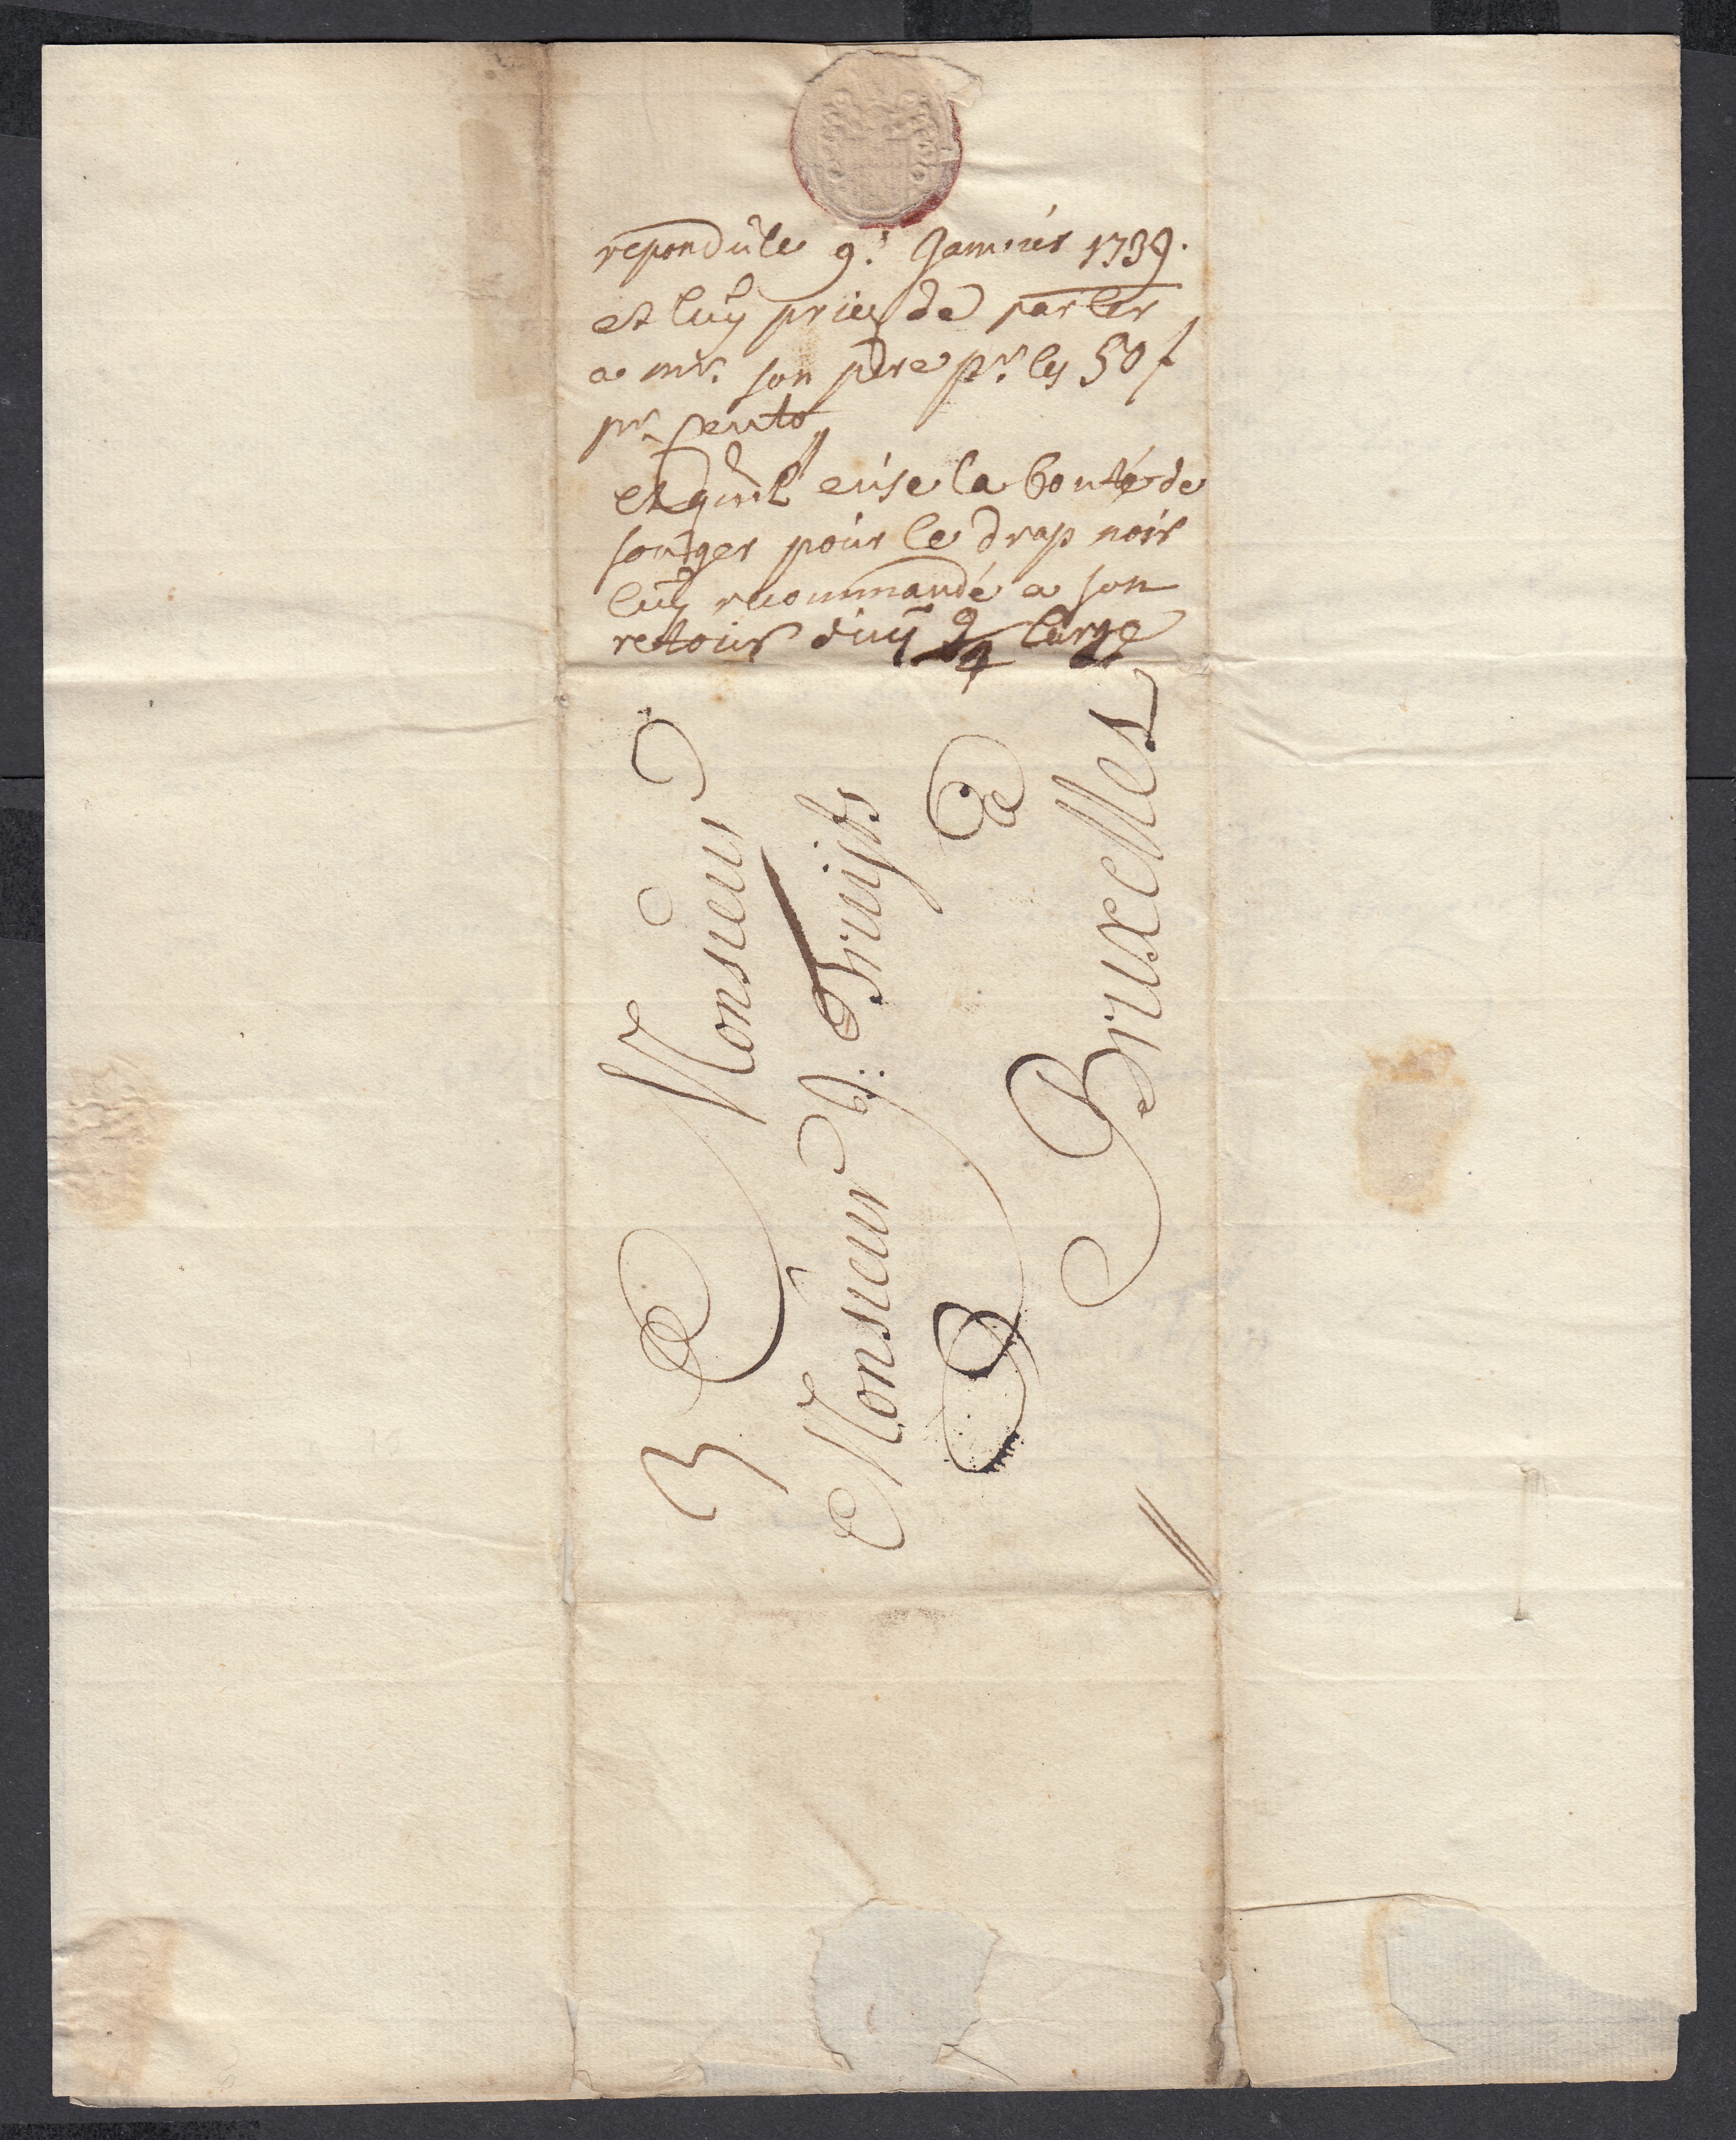 repondu le 9.e Janvier 1739.
et luy priez de parler
a mr. son pere pr. les 50 f
pr. cento
et qu'il euse la bonté de
songer pour le drap noir
luy recommandé a son
retour d'icy 9/4 large
Monsieur
Monsieur J: Truijts
a
Bruxelles
3